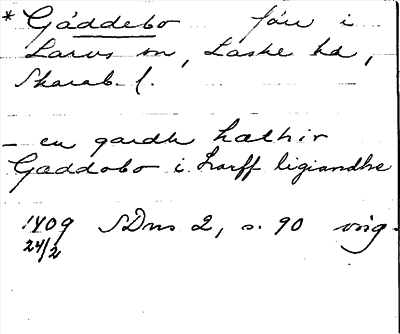 * Gäddebo förr i
Larvs sn, Laske hd,
Skarab. l.
– en gardh hæthir
Gæddobo i Larff ligiandhe
1409 SDns 2, s. 90 orig.
24/2